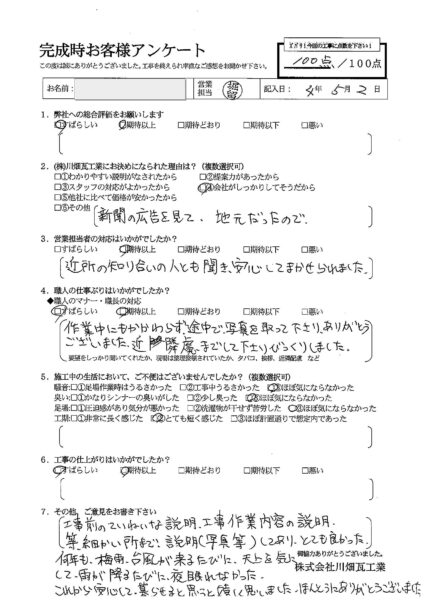 完成時お客様アンケート
この度は誠にありがとうございました。工事を終えられ率直なご感想をお聞かせ下さい。
ズバリ!今回の工事に点数を下さい!
100点/100点
お名前:
営業担当
記入日: 4年 5月 2日
1. 弊社への総合評価をお願いします
☑すばらしい ☑期待以上 □期待どおり □期待以下 □悪い
2. (株)川畑瓦工業にお決めになられた理由は?(複数選択可)
□①わかりやすい説明がなされたから □②提案力があったから
□③スタッフの対応がよかったから ☑④会社がしっかりしてそうだから
□⑤他社に比べて価格が安かったから
□⑥その他 新聞の広告を見て、地元だったので.
3. 営業担当者の対応はいかがでしたか?
□すばらしい ☑期待以上 □期待どおり □期待以下 □悪い
近所の知り合いの人とも聞き、安心してまかせられました。
4. 職人の仕事ぶりはいかがでしたか?
◆職人のマナー・職長の対応
☑すばらしい ☑期待以上 □期待どおり □期待以下 □悪い
作業中にもかかわらず途中で写真を取って下さり、ありがとう
ございました。近所 までして下さりびっくりしました。
要望をしっかり聞いてくれたか、現場は整理整頓されていたか、タバコ、挨拶、近隣配慮 など
5. 施工中の生活において、ご不便はございませんでしたか?(複数選択可)
騒音:□①足場作業時はうるさかった □②工事中うるさかった ☑③ほぼ気にならなかった
臭い:□①かなりシンナーの臭いがした □②少し臭った ☑③ほぼ気にならなかった
足場:□①圧迫感があり気分が悪かった □②洗濯物が干せず苦労した ☑③ほぼ気にならなかった
工期:□①非常に長く感じた ☑②とても短く感じた □③ほぼ計画通りで想定内であった
6. 工事の仕上がりはいかがでしたか?
☑すばらしい ☑期待以上 □期待どおり □期待以下 □悪い
7. その他、ご意見をお書き下さい
工事前のていねいな説明、工事作業内容の説明、
等細かい所まで、説明(写真等)してあり、とても良かった。
何年も、梅雨、台風が来るたびに、天上を気に
して、雨が降るたびに、夜眠れなかった。
これから安心して、暮らせると思うと嬉しく思いました。ほんとうにありがとうございました
御協力ありがとうございました。
株式会社川畑瓦工業